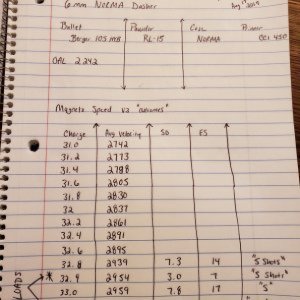 6mm NORMA Dasher
Aug 2015
Bullet Powder Case Primer
Berger 105 RL-15 NORMA CCI 450
OAL 2.242
Magneto Speed V2
Charge Avg Velocity SD ES
31.0 2742
31.2 2773
31.4 2788
31.6 2805
31.8 2830
32 2837
32.2 2861
32.4 2891
32.6 2895
32.8 2939 7.3 14 "5 Shots"
32.9 2954 3.0 7 "5 Shots"
33.0 2959 7.8 17 "5
LOADS